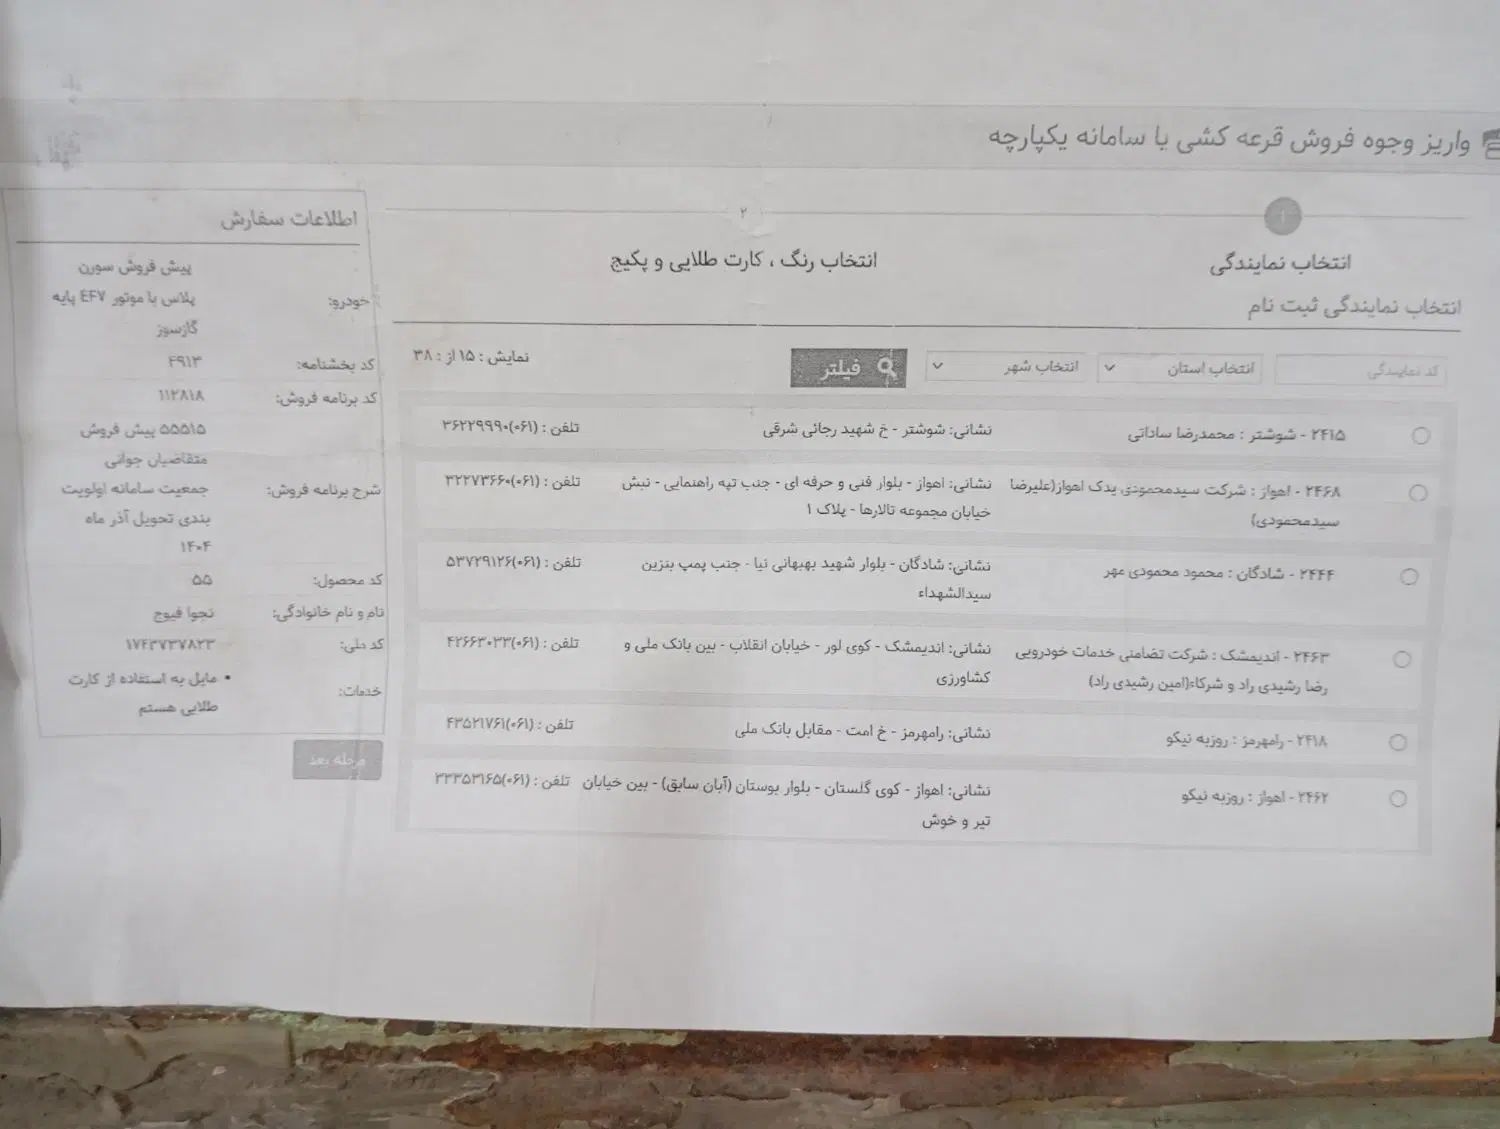 واریز وجوه فروش قرعه کشی با سامانه یکپارچه
۱
۲
انتخاب نمایندگی
انتخاب رنگ ، کارت طلایی و پکیج
انتخاب نمایندگی ثبت نام
کد نمایندگی
انتخاب استان
انتخاب شهر
فیلتر
نمایش : ۱۵ از : ۳۸
۲۴۱۵ - شوشتر : محمدرضا ساداتی
نشانی: شوشتر - خ شهید رجائی شرقی
تلفن : (۰۶۱)۳۶۲۲۹۹۹۰
۲۴۶۸ - اهواز : شرکت سیدمحمودی یدک اهواز(علیرضا
سیدمحمودی)
نشانی: اهواز - بلوار فنی و حرفه ای - جنب تپه راهنمایی - نبش
خیابان مجموعه تالارها - پلاک ۱
تلفن : (۰۶۱)۳۲۲۷۳۶۶۰
۲۴۴۴ - شادگان : محمود محمودی مهر
نشانی: شادگان - بلوار شهید بهبهانی نیا - جنب پمپ بنزین
سیدالشهداء
تلفن : (۰۶۱)۵۳۷۲۹۱۲۶
۲۴۶۳ - اندیمشک : شرکت تضامنی خدمات خودرویی
رضا رشیدی راد و شرکاء(امین رشیدی راد)
نشانی: اندیمشک - کوی لور - خیابان انقلاب - بین بانک ملی و
کشاورزی
تلفن : (۰۶۱)۴۲۶۶۳۰۳۳
۲۴۱۸ - رامهرمز : روزبه نیکو
نشانی: رامهرمز - خ امت - مقابل بانک ملی
تلفن : (۰۶۱)۴۳۵۲۱۷۶۱
۲۴۶۲ - اهواز : روزبه نیکو
نشانی: اهواز - کوی گلستان - بلوار بوستان (آبان سابق) - بین خیابان
تیر و خوش
تلفن : (۰۶۱)۳۳۳۵۳۱۶۵
اطلاعات سفارش
خودرو:
پیش فروش سورن
پلاس با موتور EF7 پایه
گازسوز
کد بخشنامه:
۴۹۱۳
کد برنامه فروش:
۱۱۲۸۱۸
شرح برنامه فروش:
۵۵۵۱۵ پیش فروش
متقاضیان جوانی
جمعیت سامانه اولویت
بندی تحویل آذر ماه
۱۴۰۴
کد محصول:
۵۵
نام و نام خانوادگی:
نجوا فیوج
کد ملی:
۱۷۴۳۷۳۷۸۲۳
خدمات:
• مایل به استفاده از کارت
طلایی هستم
مرحله بعد